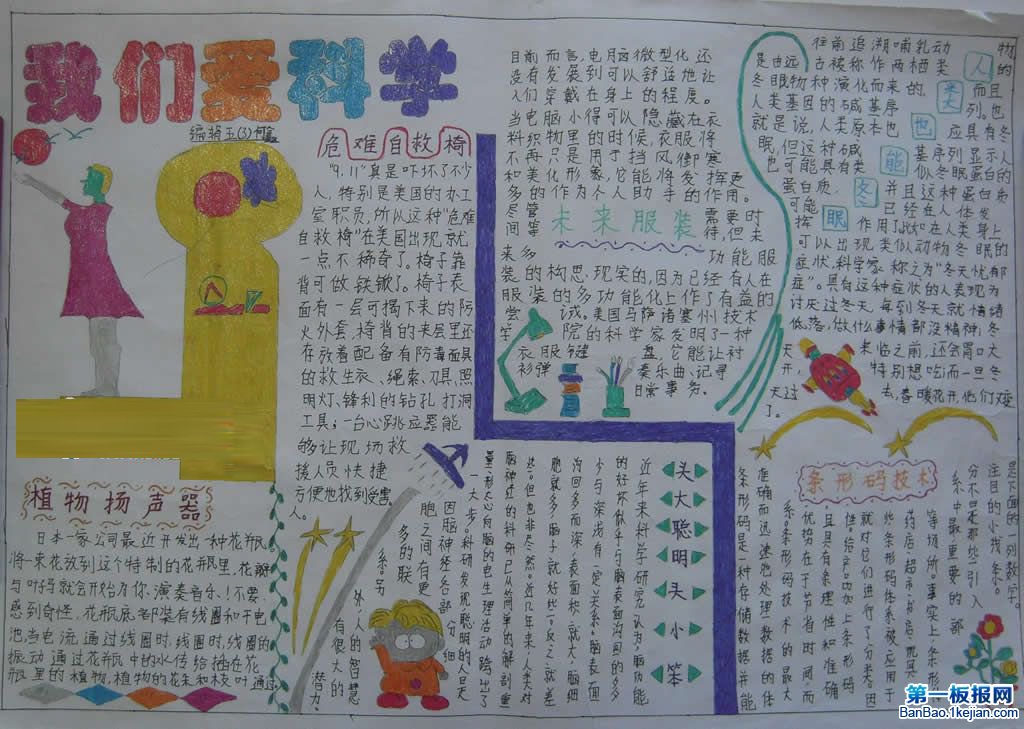 我们爱科学
编辑五(3)
危难自救椅
"9.11"真是吓坏了不少
人，特别是美国的办工
室职员，所以这种"危难
自救椅"在美国出现就
一点不稀奇了。椅子靠
背可做铁锹了。椅子表
面有一层可揭下来的防
火外套，椅背的夹层里还
存放着配备有防毒面具
的救生衣、绳索、刀具、照
明灯、锋利的钻孔打洞
工具；一台心跳应器能
够让现场救
援人员快捷
方便地找到受害
人。
植物扬声器
日本一家公司最近开发出一种花瓶，
将一束花放到这个特制的花瓶里，花瓣
与叶吗就会开始为你演奏音乐！不要
感到奇怪，花瓶底部架有线圈和干电
池，当电流通过线圈时，线圈时，线圈的
振动通过花瓶中的水传给插在花
瓶里的植物，植物的花朵和枝叶通过
目前而言，电脑微型化还
没有发展到可以舒适地让
人们穿戴在身上的程度。
当电脑小得可以隐藏在衣
料织物里的时候，衣服将
不再只是用于挡风、御寒
和美化形象，它能将发挥更
多的作为个人助手的作用。
未来服装
尽管 需要时
间等 待，但未
来多 功能服
装的构思现实的，因为已经有人在
服装的多功能化上作了有益的
尝 试。美国马萨诸塞州技术
学 院的科学家发明了一种
衣服键 盘，它能让衬
衫弹 奏乐曲、记寻
日常事务。
人类也能冬眠
往前追溯哺乳动 物
是由远古被称作两栖类 的
冬眠物种演化而来的， 而且
人类基因的碱基序 列。也
就是说，人类原本也 应具有冬
眠，但这种碱 基序列显示人
也可能具有类 似冬眠蛋白的
蛋白质， 并且这种蛋白质
可能 已经在人体发
挥 作用了。比如在人类身上
可以出现类似动物冬眠的
症状，科学家称之为"冬天忧郁
症"。具有这种症状的人表现为
讨厌过冬天，每到冬天就情绪
低落，做什么事情都没精神；冬
天 来临之前，还会胃口大
开， 特别想吃；而一旦冬
天过 去，春暖花开，他们又
了。
头大聪明头小笨
近年来科学研究认为，脑功能
的好坏似乎与脑表面沟回的多
少与深浅有一定关系。脑表面
沟回多而深，表面积就大，脑细
胞就多，脑子就好些，反之就差
些。但也非尽然。近几年来，人类对
脑神经的科研已从简单的解剖重
量、形态向脑的电生理活动跨出了
一大步。科研发现聪明的人是
因脑神经各部分细
胞之间有更
多的联
系。另
外，人的智慧
有很大的
潜力。
条形码技术
是下面的一列数字。
注目的小线条，
分不是那些引人
系中最重要的部
等场所。事实上，条形
药店、超市、书店、
些条形码体系被应用于
就对它们进行了分类。因
件给产品加上条形码
且具有条理性和准确
优均在于节省时间而
系。条形码技术的最大
准确而迅速地处理数据的体
条形码是一种存储数据并能
第一板报网
BanBao.1kejian.com